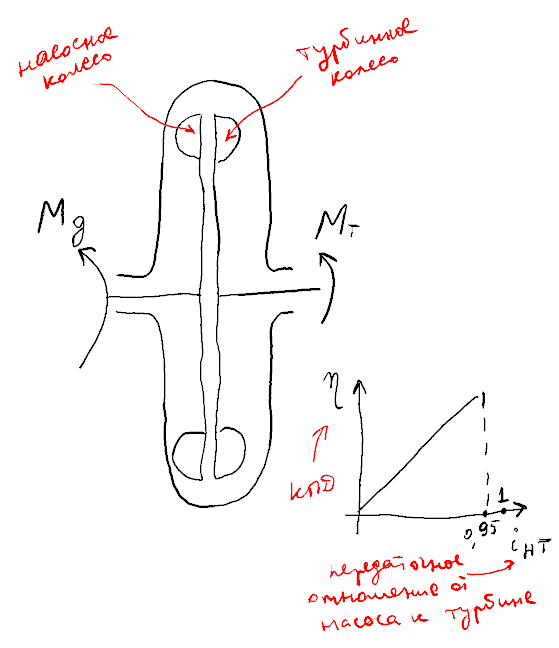 насосное
колесо
турбинное
колесо
Mд
Mт
η
КПД
0,95
1
i нт
передаточное
отношение от
насоса к турбине